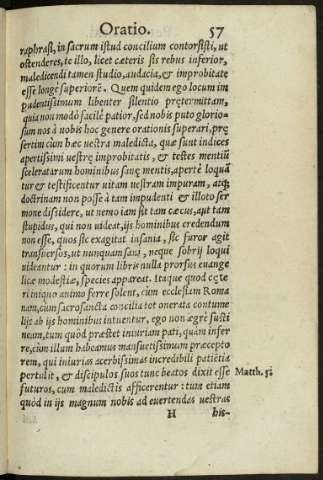 Oratio. 57
raphrasi, in sacrum istud concilium contorsisti, ut
ostenderes, te illo, licet cæteris sis rebus inferior,
maledicendi tamen studio, audacia, & improbitate
esse longè superiorē. Quem quidem ego locum im
pudentissimum libenter silentio prętermittam,
quia non modò facilè patior, sed nobis puto glorio-
sum nos à uobis hoc genere orationis superari, prę
sertim cùm hæc uestra maledicta, quæ sunt indices
apertissimi uestrę improbitatis, & testes mentiū
sceleratarum hominibus sanę mentis, apertè loquā
tur & testificentur uitam uestram impuram, atq́;
doctrinam non posse à tam impudenti & illoto ser
mone dissidere, ut nemo iam sit tam cæcus, aut tam
stupidus, qui non uideat, ijs hominibus credendum
non esse, quos sic exagitat insania, sic furor agit
transuersos, ut nunquam sani, neque sobrij loqui
uideantur: in quorum libris nulla prorsus euange
licæ modestiæ, species appareat. Itaque quod cęte
ri iniquo animo ferre solent, cùm ecclesiam Roma
nam, cùm sacrosancta concilia tot onerata contume
lijs ab ijs hominibus intuentur, ego non ægrè susti
neam, tum quòd præstet iniuriam pati, quàm infer
re, cùm illum habeamus mansuetissimum præcepto
rem, qui iniurias acerbissimas incredibili patiētia
pertulit, & discipulos suos tunc beatos dixit esse Matth. 5.
futuros, cum maledictis afficerentur: tum etiam
quòd in ijs magnum nobis ad euertendas uestras
H his-